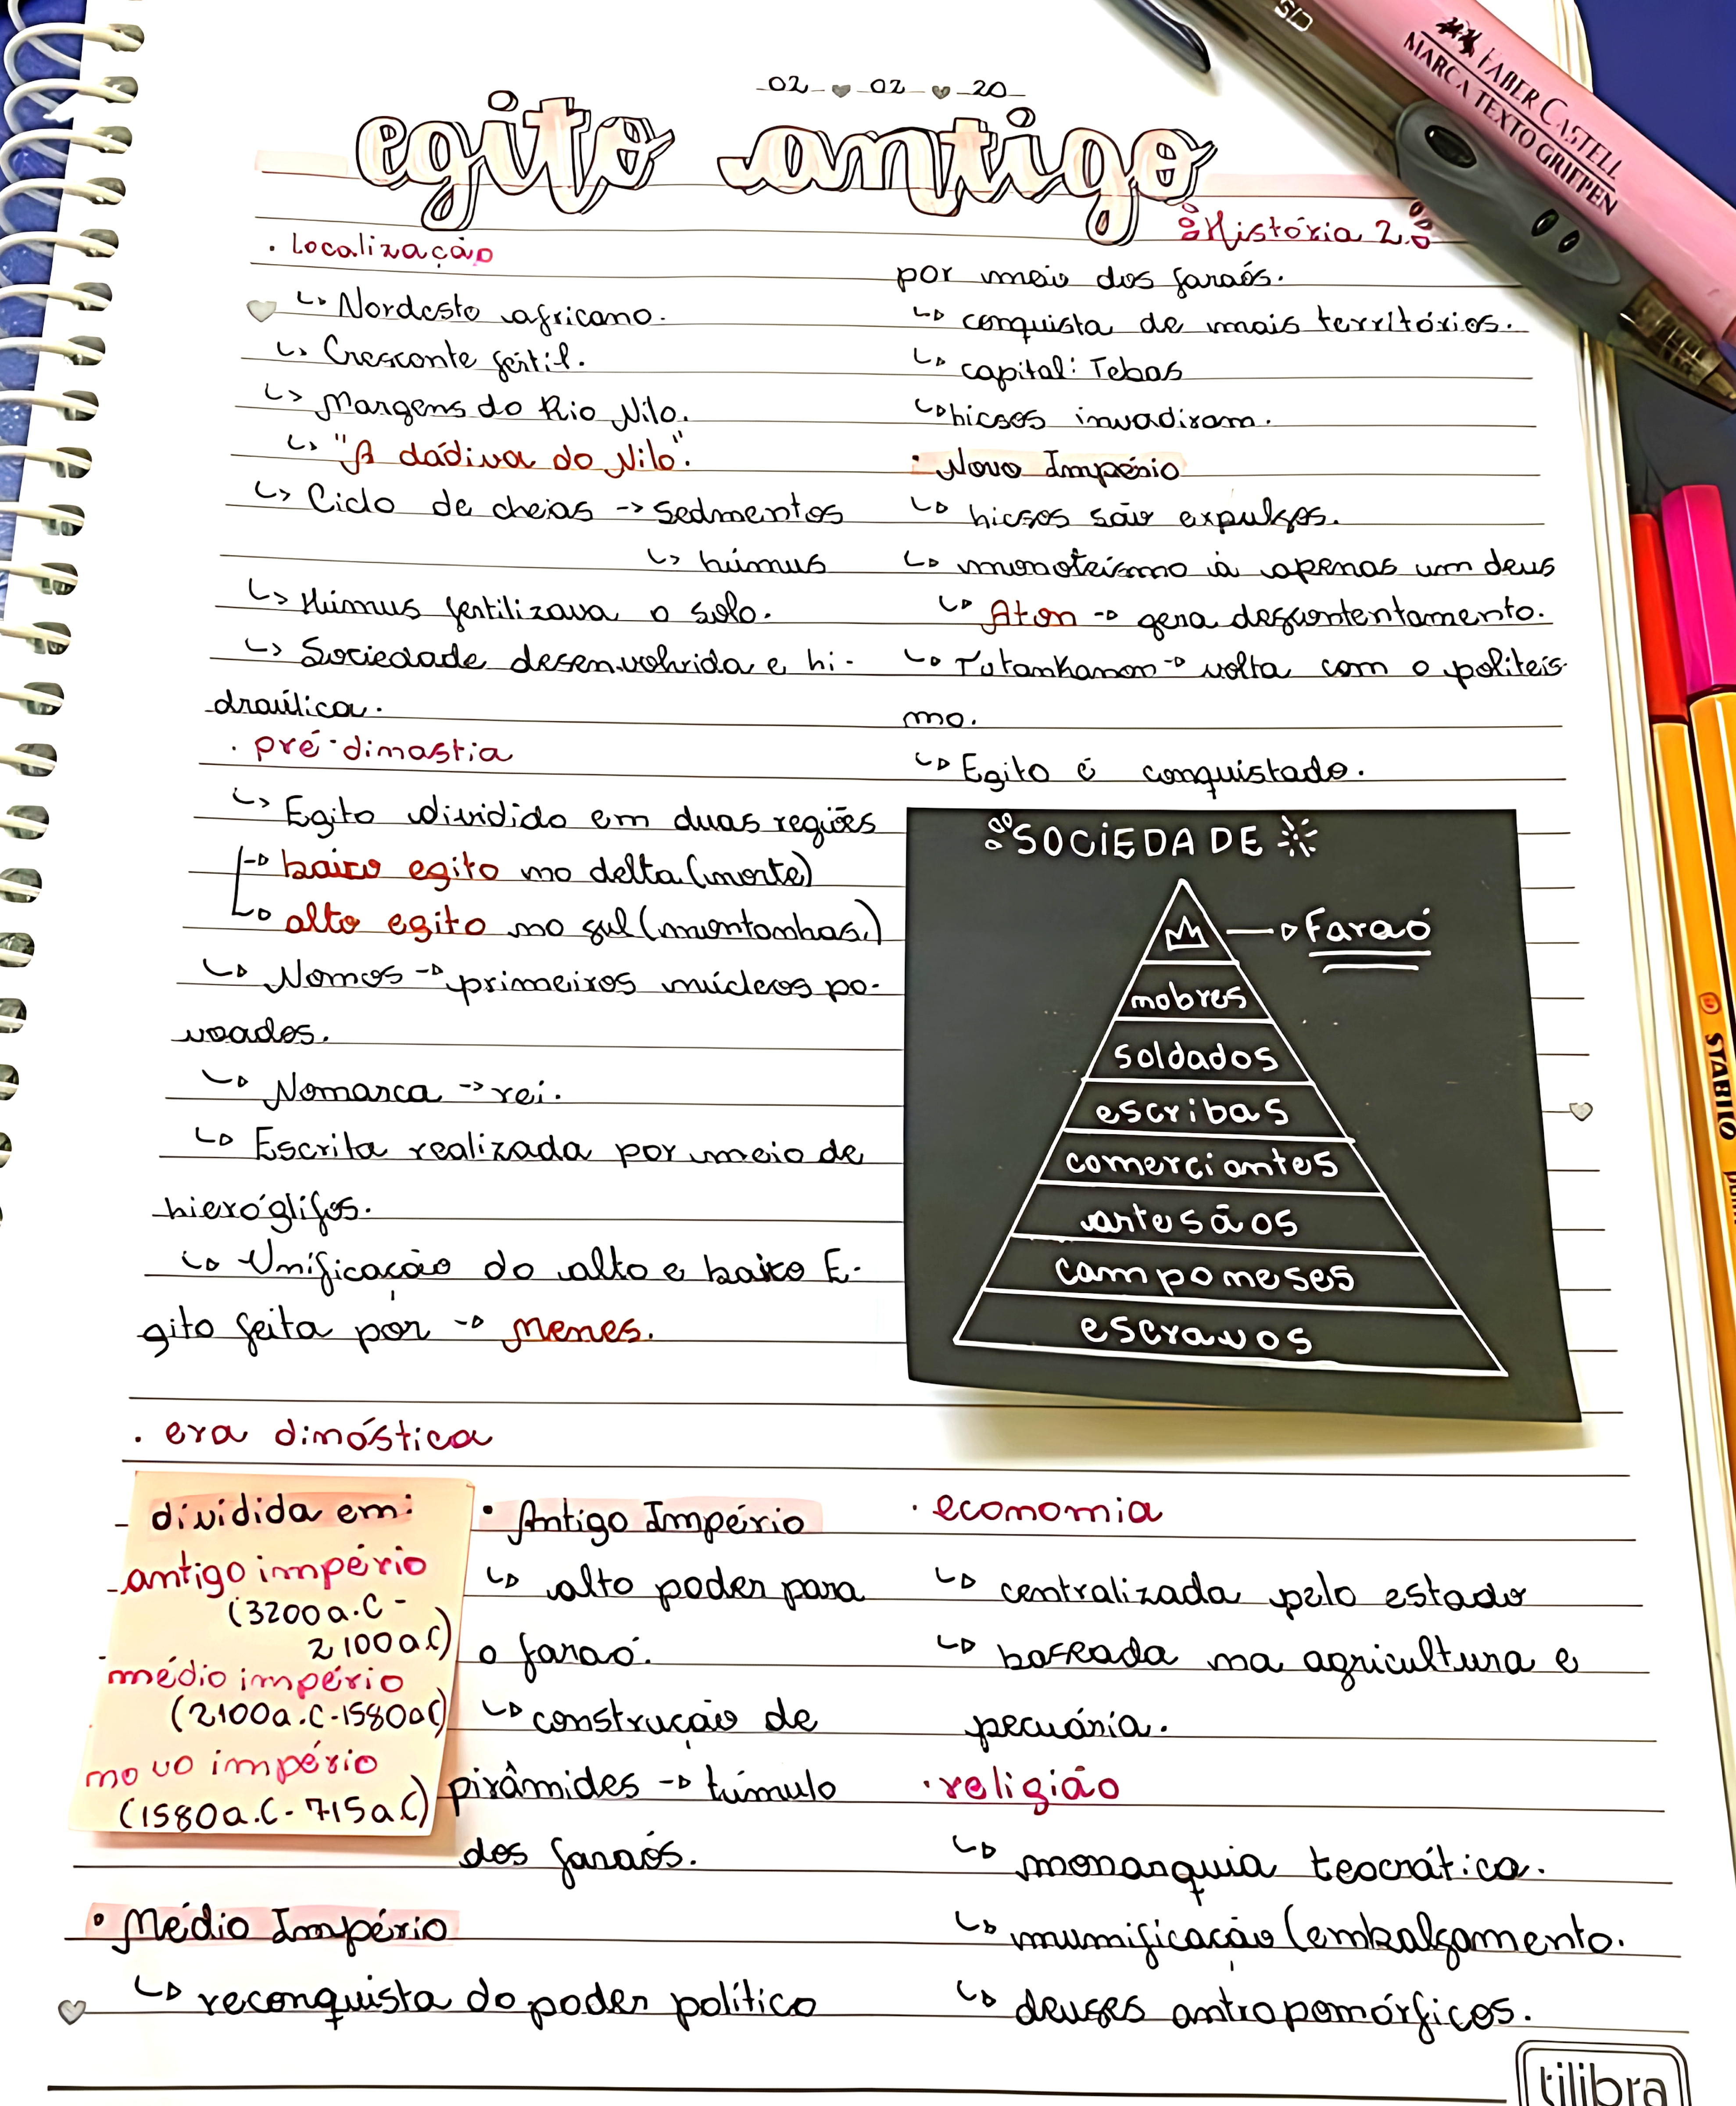 02 02 20
egito antigo
História 2
. Localização
↳ Nordeste africano.
↳ Crescente fértil.
↳ Margens do Rio Nilo.
↳ "A dádiva do Nilo".
↳ Ciclo de cheias → sedmentos
↳ húmus
↳ Húmus fertilizava o solo.
↳ Sociedade desenvolvida e hi-
draúlica.
. pré-dinastia
↳ Egito dividido em duas regiões
→ baixo egito no delta (norte)
→ alto egito no sul (montanhas.)
↳ Nomos → primeiros núcleos po-
voados.
↳ Nomarca → rei.
↳ Escrita realizada por meio de
hieróglifos.
↳ Unificação do alto e baixo E-
gito feita por → Menes.
. era dinástica
dividida em:
antigo império
(3200a.C -
2100a.C)
médio império
(2100a.C-1580aC)
novo império
(1580a.C-715a.C)
• Antigo Império
↳ alto poder para
o faraó.
↳ construção de
pirâmides → túmulo
dos faraós.
• Médio Império
↳ reconquista do poder político
por meio dos faraós.
↳ conquista de mais territórios.
↳ capital: Tebas
↳ hicsos invadiram.
• Novo Império
↳ hicsos são expulsos.
↳ monoteísmo à apenas um deus
↳ Aton → gera descontentamento.
↳ Tutankamon → volta com o politeís-
mo.
↳ Egito é conquistado.
SOCIEDADE
→ Faraó
nobres
soldados
escribas
comerciantes
artesãos
camponeses
escravos
. economia
↳ centralizada pelo estado
↳ baseada na agricultura e
pecuária.
. religião
↳ monarquia teocrática.
↳ mumificação (embalsamento.
↳ deuses antropomórficos.
FABER CASTELL
MARCA TEXTO GRIFPEN
CIS
STABILO
tilibra